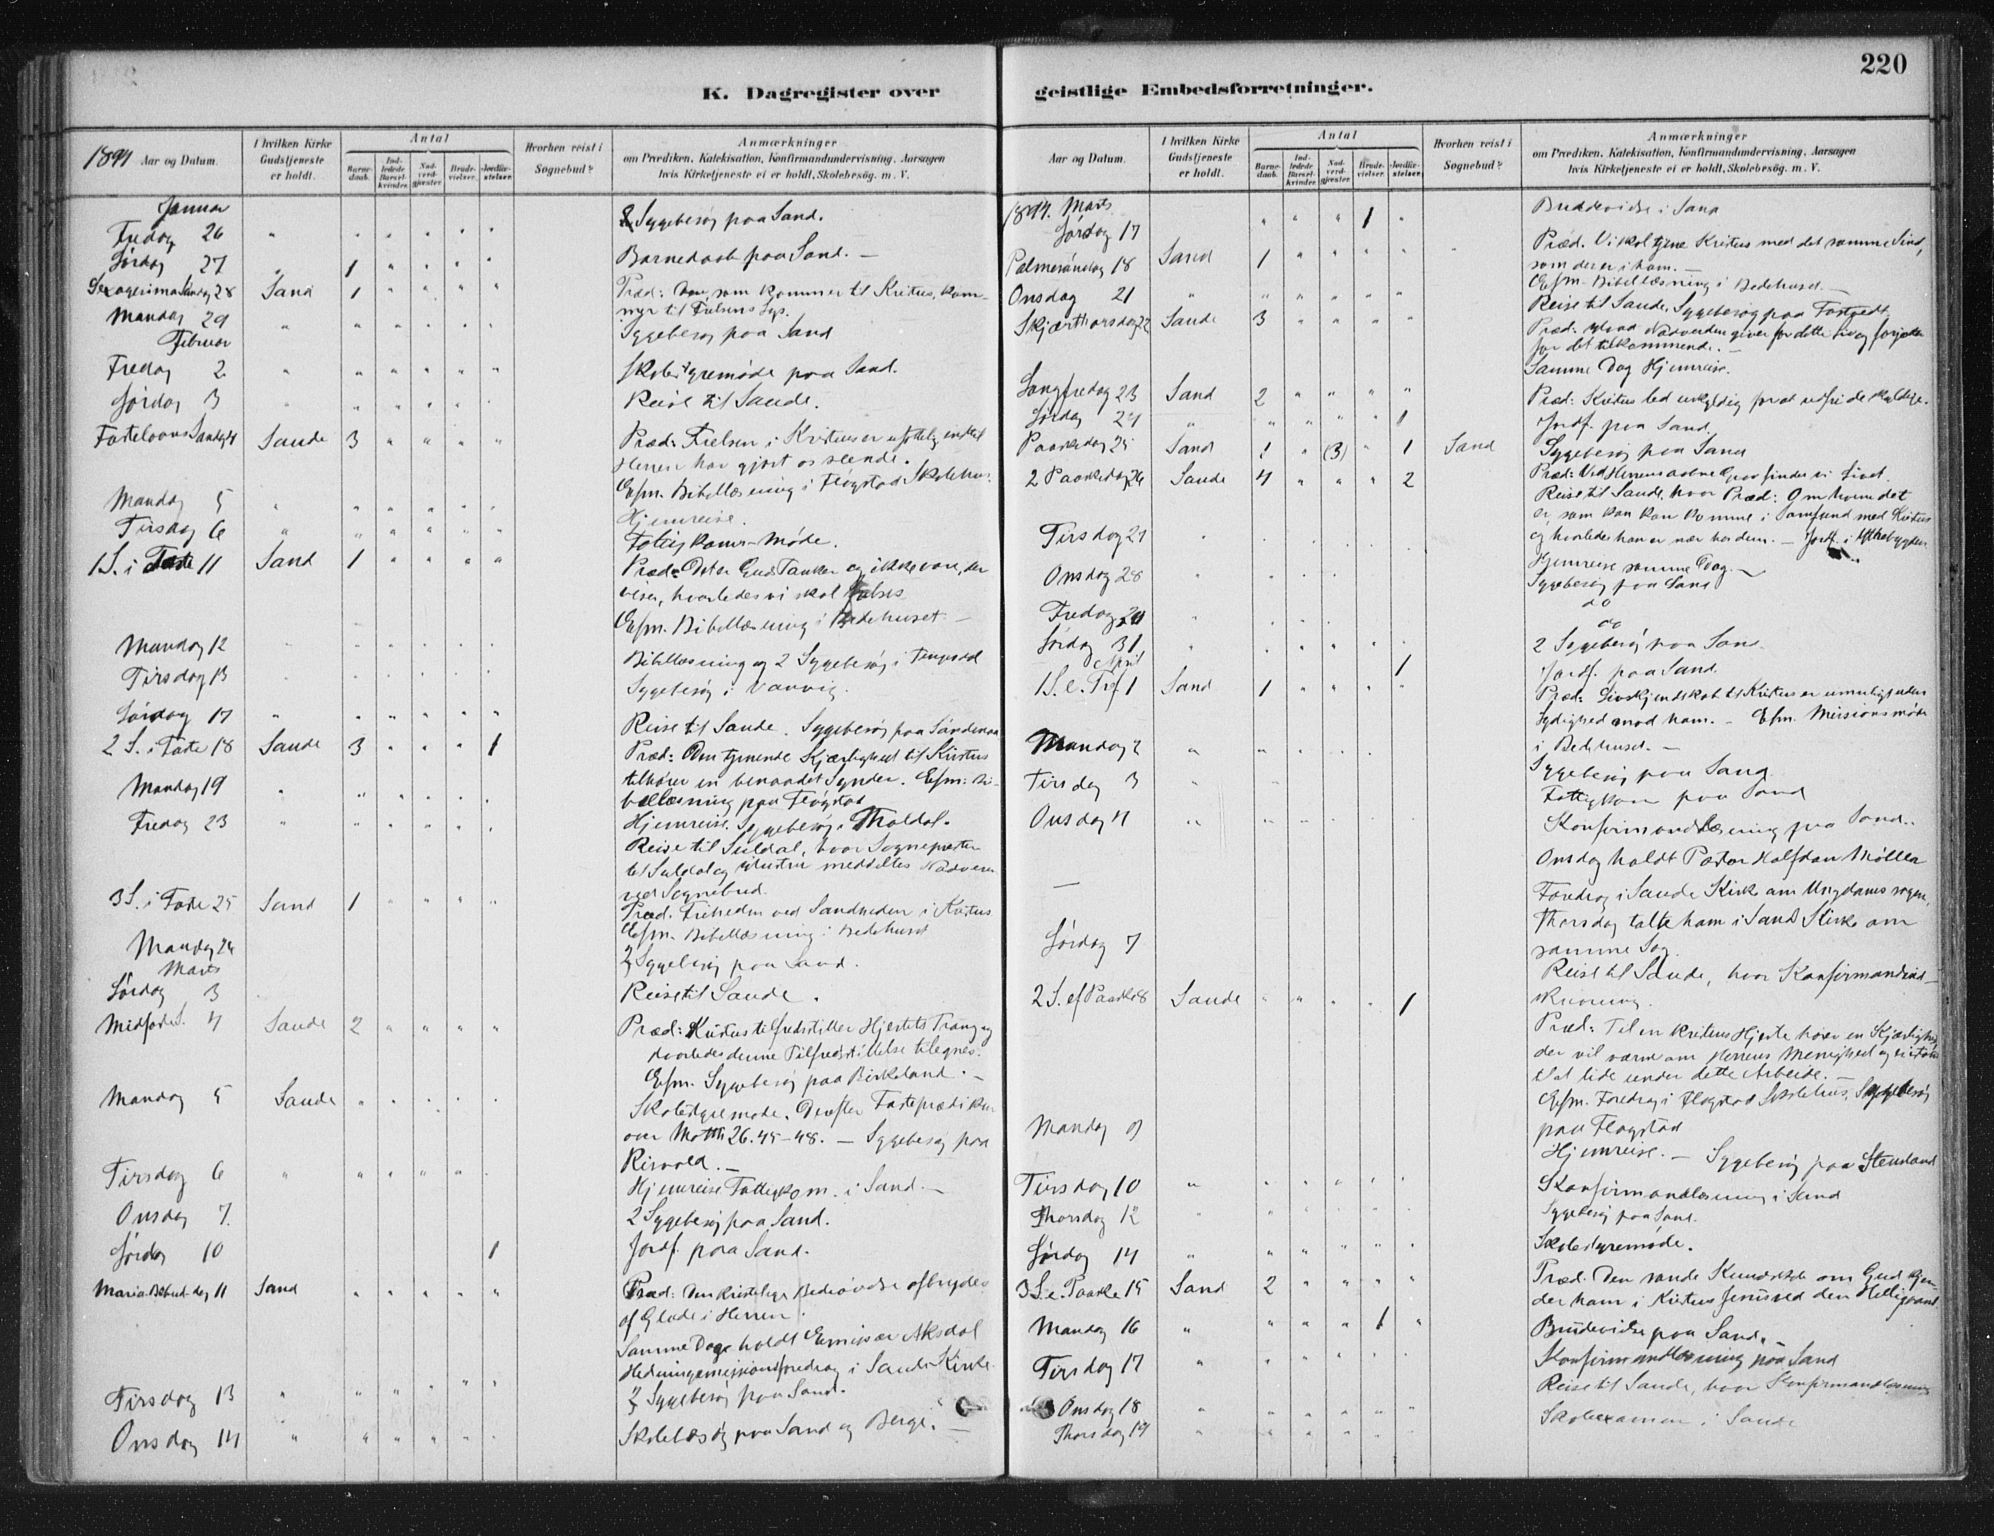 220
K. Dagregister over geistlige Embedsforretninger.
1894 Aar og Datum.
I hvilken Kirke Gudstjeneste er holdt.
Antal
Barnedaab.
Indledede Barselkvinder.
Nadverdgjester.
Brudevielser.
Jordfæstelser.
Hvorhen reist i Sognebud?
Anmærkninger
om Prædiken, Katekisation, Konfirmandundervisning, Aarsagen
hvis Kirketjeneste ei er holdt, Skolebesög. m. V.
Januar
Fredag 26 " Sygebesøg paa Sand.
Lørdag 27 " 1 Barnedaab paa Sand. —
Sexagesima Søndag 28 Sand 1 Præd: som kommer til Kristus, kom-
mer til
Mandag 29 " Sygebesøg paa Sand
Februar
Fredag 2 " Skolestyremøde paa Sand.
Lørdag 3 " Reise til Sande.
Fastelavns Søndag 4 Sande 3 Præd: Frelsen i Kristus er
Herren har gjort os seende.
Efm. Bibellæsning i Fløgstad Skolehus.
Mandag 5 " Hjemreise.
Tirsdag 6 " Fattigkoms-Møde.
1 S. i Faste 11 Sand 1 Præd: Det er Guds Tanker og ikke vore, der
viser, hvorledes vi skal frelses
Efm. Bibellæsning i Bedehuset —
Mandag 12 Bibellæsning og 2 Sygebesøg i
Tirsdag 13 Sygebesøg i Vanvig.
Lørdag 17 " Reise til Sande. Sygebesøg paa Søndenaa
2 S. i Faste 18 Sande 3 1 Præd: Om tjenende Kjærlighed til Kristus
tilhører en benaadet Synder. Efm: Bi-
bellæsning paa Fløgstad
Mandag 19 " Hjemreise. Sygebesøg i
Fredag 23 " Reise til Suldal, hvor Sognepræsten
til Suldal og meddeltes Nadveren
ved Sognebud.
3 S. i Faste 25 Sand 1 Præd. Friheden ved Sandheden i Kristus
Efm. Bibellæsning i Bedehuset
Mandag 26 2 Sygebesøg paa Sand.
Marts
Lørdag 3 Reise til Sande.
Midfaste S. 4 Sande 2 Præd: Kristus tilfredsstiller Hjertets Trang og
hvorledes denne Tilfredsstillelse tilegnes.
Efm. Sygebesøg paa Birkeland. —
Mandag 5 Sande Skolestyremøde. Derefter Fasteprædiken
over Matth 26.45-48. — Sygebesøg paa
Risvold. —
Tirsdag 6 " Hjemreise Fattigkom. i Sand. —
Onsdag 7. 2 Sygebesøg paa Sand.
Lørdag 10 1 Jordf. paa Sand.
Maria Bebud. dag 11 Sand Præd: Den kristelige Bedrøvelse afbrydes
af Glæde i Herren.
Samme Dag holdt Emissær Aksdal
Hedningemissionsforedrag i Sande Kirke.
Tirsdag 13 " 2 Sygebesøg paa Sand.
Onsdag 14 " Skolebesøg paa Sand og Berge. —
Aar og Datum.
I hvilken Kirke Gudstjeneste er holdt.
Antal
Barnedaab.
Indledede Barselkvinder.
Nadverdgjester.
Brudevielser.
Jordfæstelser.
Hvorhen reist i Sognebud?
Anmærkninger
om Prædiken, Katekisation, Konfirmandundervisning, Aarsagen
hvis Kirketjeneste ei er holdt, Skolebesög. m. V.
1894. Marts
Lørdag 17 1 Brudevielse i Sand
Palmesøndag 18 Sand 1 Præd. Vi skal tjene Kristus med det samme Sind,
som der er i ham. —
Efm. Bibellæsning i Bedehuset. —
Onsdag 21 " Reise til Sande, Sygebesøg paa
Skjærthorsdag 22 Sande 3 Præd: Hvad Nadverden giver for dette Liv og
for det tilkommende. —
Samme Dag Hjemreise.
Langfredag 23 Sand 2 Præd: Kristus led uskyldig for at udfri de skyldige.
Lørdag 24 " 1 Jordf. paa Sand.
Paaskedag 25 Sand 1 (3) 1 Sand Sygebesøg paa Sand
Præd: Ved Herrens aabne Grav finder vi Livet.
2 Paaskedag 26 Sande 4 2 Reise til Sande, hvor Præd: Om hvem det
er, som kan komme i Samfund med Kristus
og hvorledes han er nær hos dem. — Jordf. i
Hjemreise samme Dag. —
Tirsdag 27 Sygebesøg paa Sand
Onsdag 28 do
Fredag 30 do
Lørdag 31 2 Sygebesøg paa Sand
April
1 Jordf. paa Sand.
1 S. e. 1 Sand 1 Præd. Livskjendskab til Kristus er umuligt uden
Lydighed mod ham. — Efm. Missionsmøde
i Bedehuset. —
Mandag 2 " Sygebesøg paa Sand
Tirsdag 3 " Fattigkom paa Sand
Onsdag 4 " Konfirmandlæsning paa Sand.
— Onsdag holdt Pastor Halfdan Møller
Foredrag i Sande Kirke om Ungdomssagen,
Thorsdag talte ham i Sand Kirke om
samme Sag.
Lørdag 7 Reise til Sande, hvor Konfirmandind-
skrivning.
2 S. ef Paaske 8 Sande 1 Præd: Til en Kristens Hjerte hører en Kjærlighed
der vil værne om Herrens Menighed og
at lide under dette Arbeide. —
Efm. Foredrag i Fløgstad Skolehus, Sygebesøg
paa Fløgstad
Mandag 9 Hjemreise. — Sygebesøg paa Stensland
Tirsdag 10 " Konfirmandlæsning i Sand
Thorsdag 12 " Sygebesøg paa Sand.
Lørdag 14 " Skolestyremøde.
3 S. e. Paaske 15 Sand 2 Præd. Den sande Kundskab om Gud
ham i Kristus Jesus ved den Helligaand
Mandag 16 " 1 Brudevielse paa Sand. —
Tirsdag 17 " Konfirmandlæsning paa Sand
Onsdag 18 " Reise til Sande, hvor Konfirmandlæsning
Thorsdag 19 " Skoleexamen i Sande